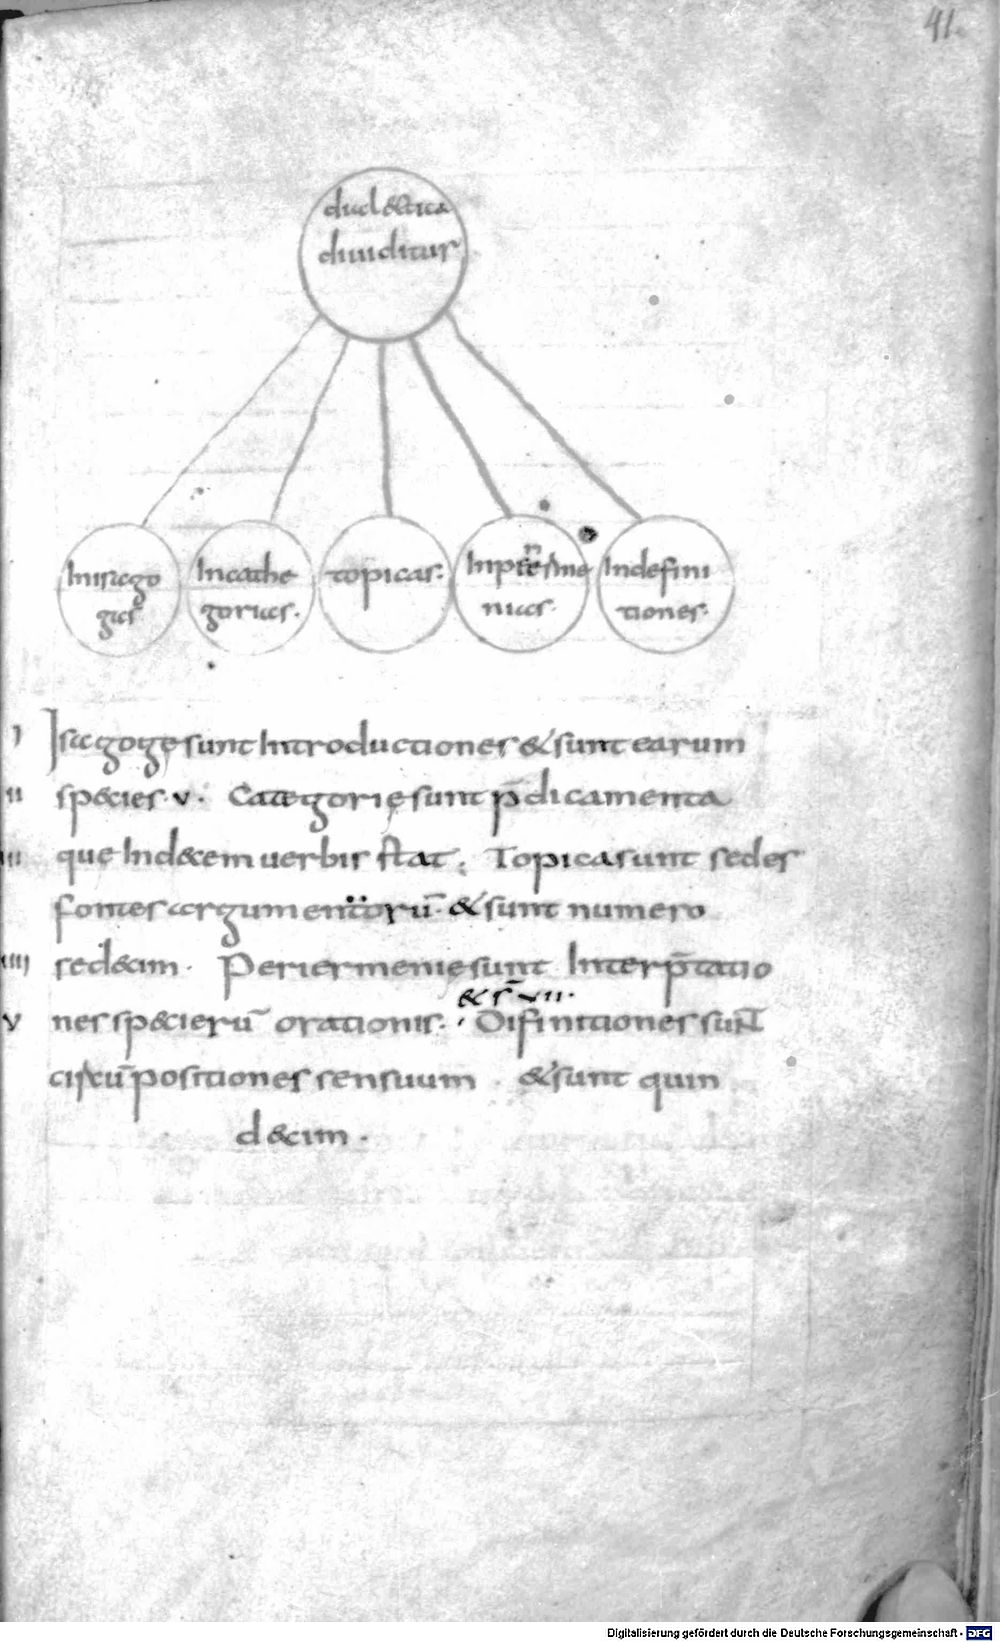 41.
dialectica
diuiditur
Inisago
gas
Incathe
gorias.
topicas.
Inp
nias.
Indefini
tiones.
I Isagogę sunt Introductiones & sunt earum
II species .v. Categorię sunt p̄dicamenta
III quę Indecem uerbis stat. Topica sunt sedes
fontes argumentorū. & sunt numero
IIII sedecim. Periermenię sunt Interp̄tatio
& s̄ vii.
V nes specierū orationis. Difinitiones sunt
circū positiones sensuum. & sunt quin
decim.
Digitalisierung gefördert durch die Deutsche Forschungsgemeinschaft - DFG